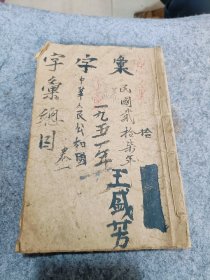 字彙
民國貳拾柒年
拾
中華人民共和國
一九五一年
王盛芳
字彙總目
卷一